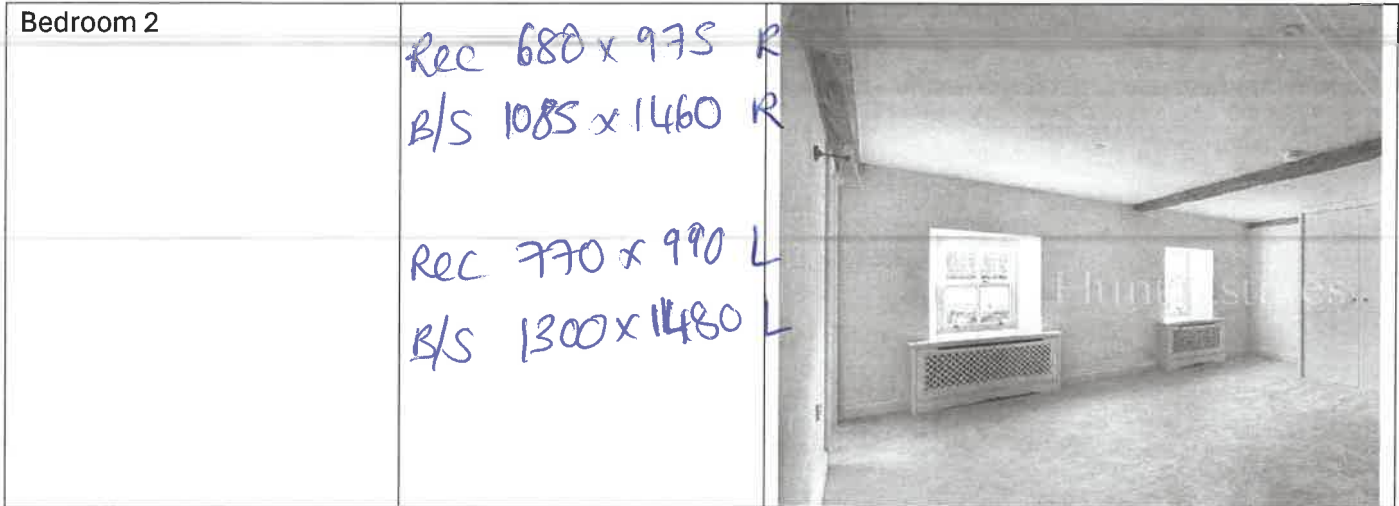 Bedroom 2
Rec 680 x 975 R
B/S 1085 x 1460 R
Rec 770 x 990 L
B/S 1300 x 1480 L